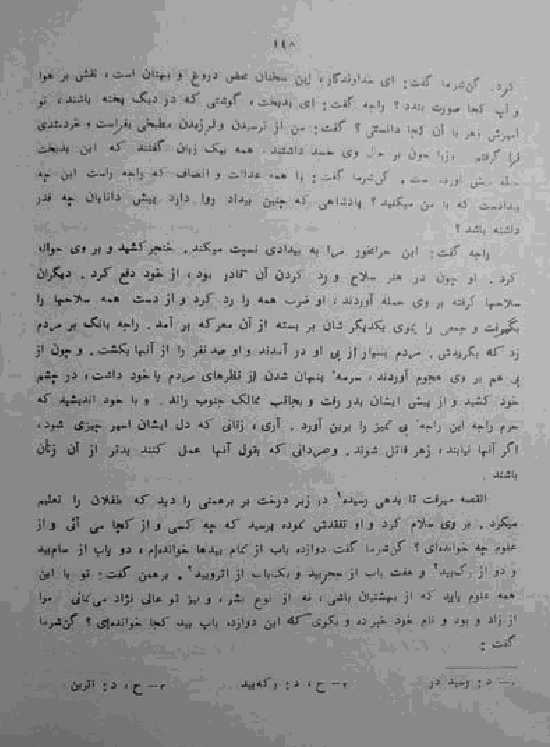 ۴۴۸
کرد. گن‌شرما گفت: ای خداوندگار، این سخنان محض دروغ و بهتان است، نقش بر هوا
و آب کجا صورت بندد؟ راجه گفت: ای بدبخت، گوشتی که در دیگ پخته باشند، تو
آمیزش زهر با آن کجا دانستی؟ گفت: من از ترسیدن و لرزیدن مطبخی بفراست و خردمندی
همه بیک زبان گفتند که این بدبخت
گن‌شرما گفت: با همه عدالت و انصاف که راجه راست این چه
بیدادست که با من میکنید؟ پادشاهی که چنین بیداد روا دارد پیش دانایان چه قدر
داشته باشد؟
راجه گفت: این حرامخور مرا به بیدادی نسبت میکند. خنجر کشید و بر وی حواله
کرد. او چون در هنر سلاح و رد کردن آن قادر بود، از خود دفع کرد. دیگران
سلاحها گرفته بر وی حمله آوردند، او ضرب همه را رد کرد و از دست همه سلاحها را
بگرفت و جمعی را بموی یکدیگر شان بر بسته از آن معرکه بر آمد. راجه بانگ بر مردم
زد که بگیریدش. مردم بسیار از پی او در آمدند و او صد نفر را از آنها بکشت. و چون از
پی هم بر وی هجوم آوردند، سرمهٔ پنهان شدن از نظرهای مردم با خود داشت، در چشم
خود کشید و از پیش ایشان بدر رفت و بجانب ممالک جنوب راند. و با خود اندیشید که
حرم راجه این راجهٔ بی تمیز را برین آورد. آری، زنانی که دل ایشان اسیر چیزی شود،
اگر آنها نیابند، زهر قاتل شوند. و مردانی که بقول آنها عمل کنند بدتر از آن زنان
باشند.
القصه میرفت تا بدهی رسید¹ در زیر درخت بر برهمنی را دید که طفلان را تعلیم
میکرد. بر وی سلام کرد و او تفقدش نموده پرسید که چه کسی و از کجا می آئی و از
علوم چه خوانده‌ای؟ گن‌شرما گفت دوازده باب از تمام بیدها خوانده‌ام، دو باب از سام‌بید
و دو از رک‌بید² و هفت باب از ججربید و یک‌باب از اتروبید³. برهمن گفت: تو با این
همه علوم باید که از بهشتیان باشی، نه از نوع بشر، و نیز تو عالی نژاد می‌نمائی مرا
از زاد و بود و نام خود خبر ده و بگوی که این دوازده باب بید کجا خوانده‌ای؟ گن‌شرما
گفت:
۱— د: رسید در ۲— ح، د: رکه‌بید ۳— ح، د: اتربن